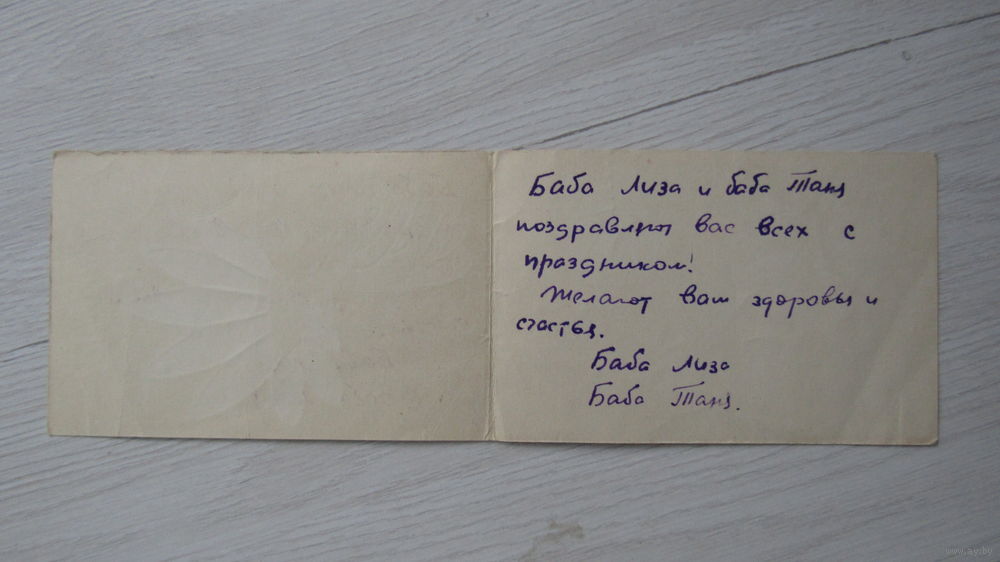 Баба Лиза и баба Таня
поздравляют вас всех с
праздником!
Желают вам здоровья и
счастья.
Баба Лиза
Баба Таня.
www.ay.by